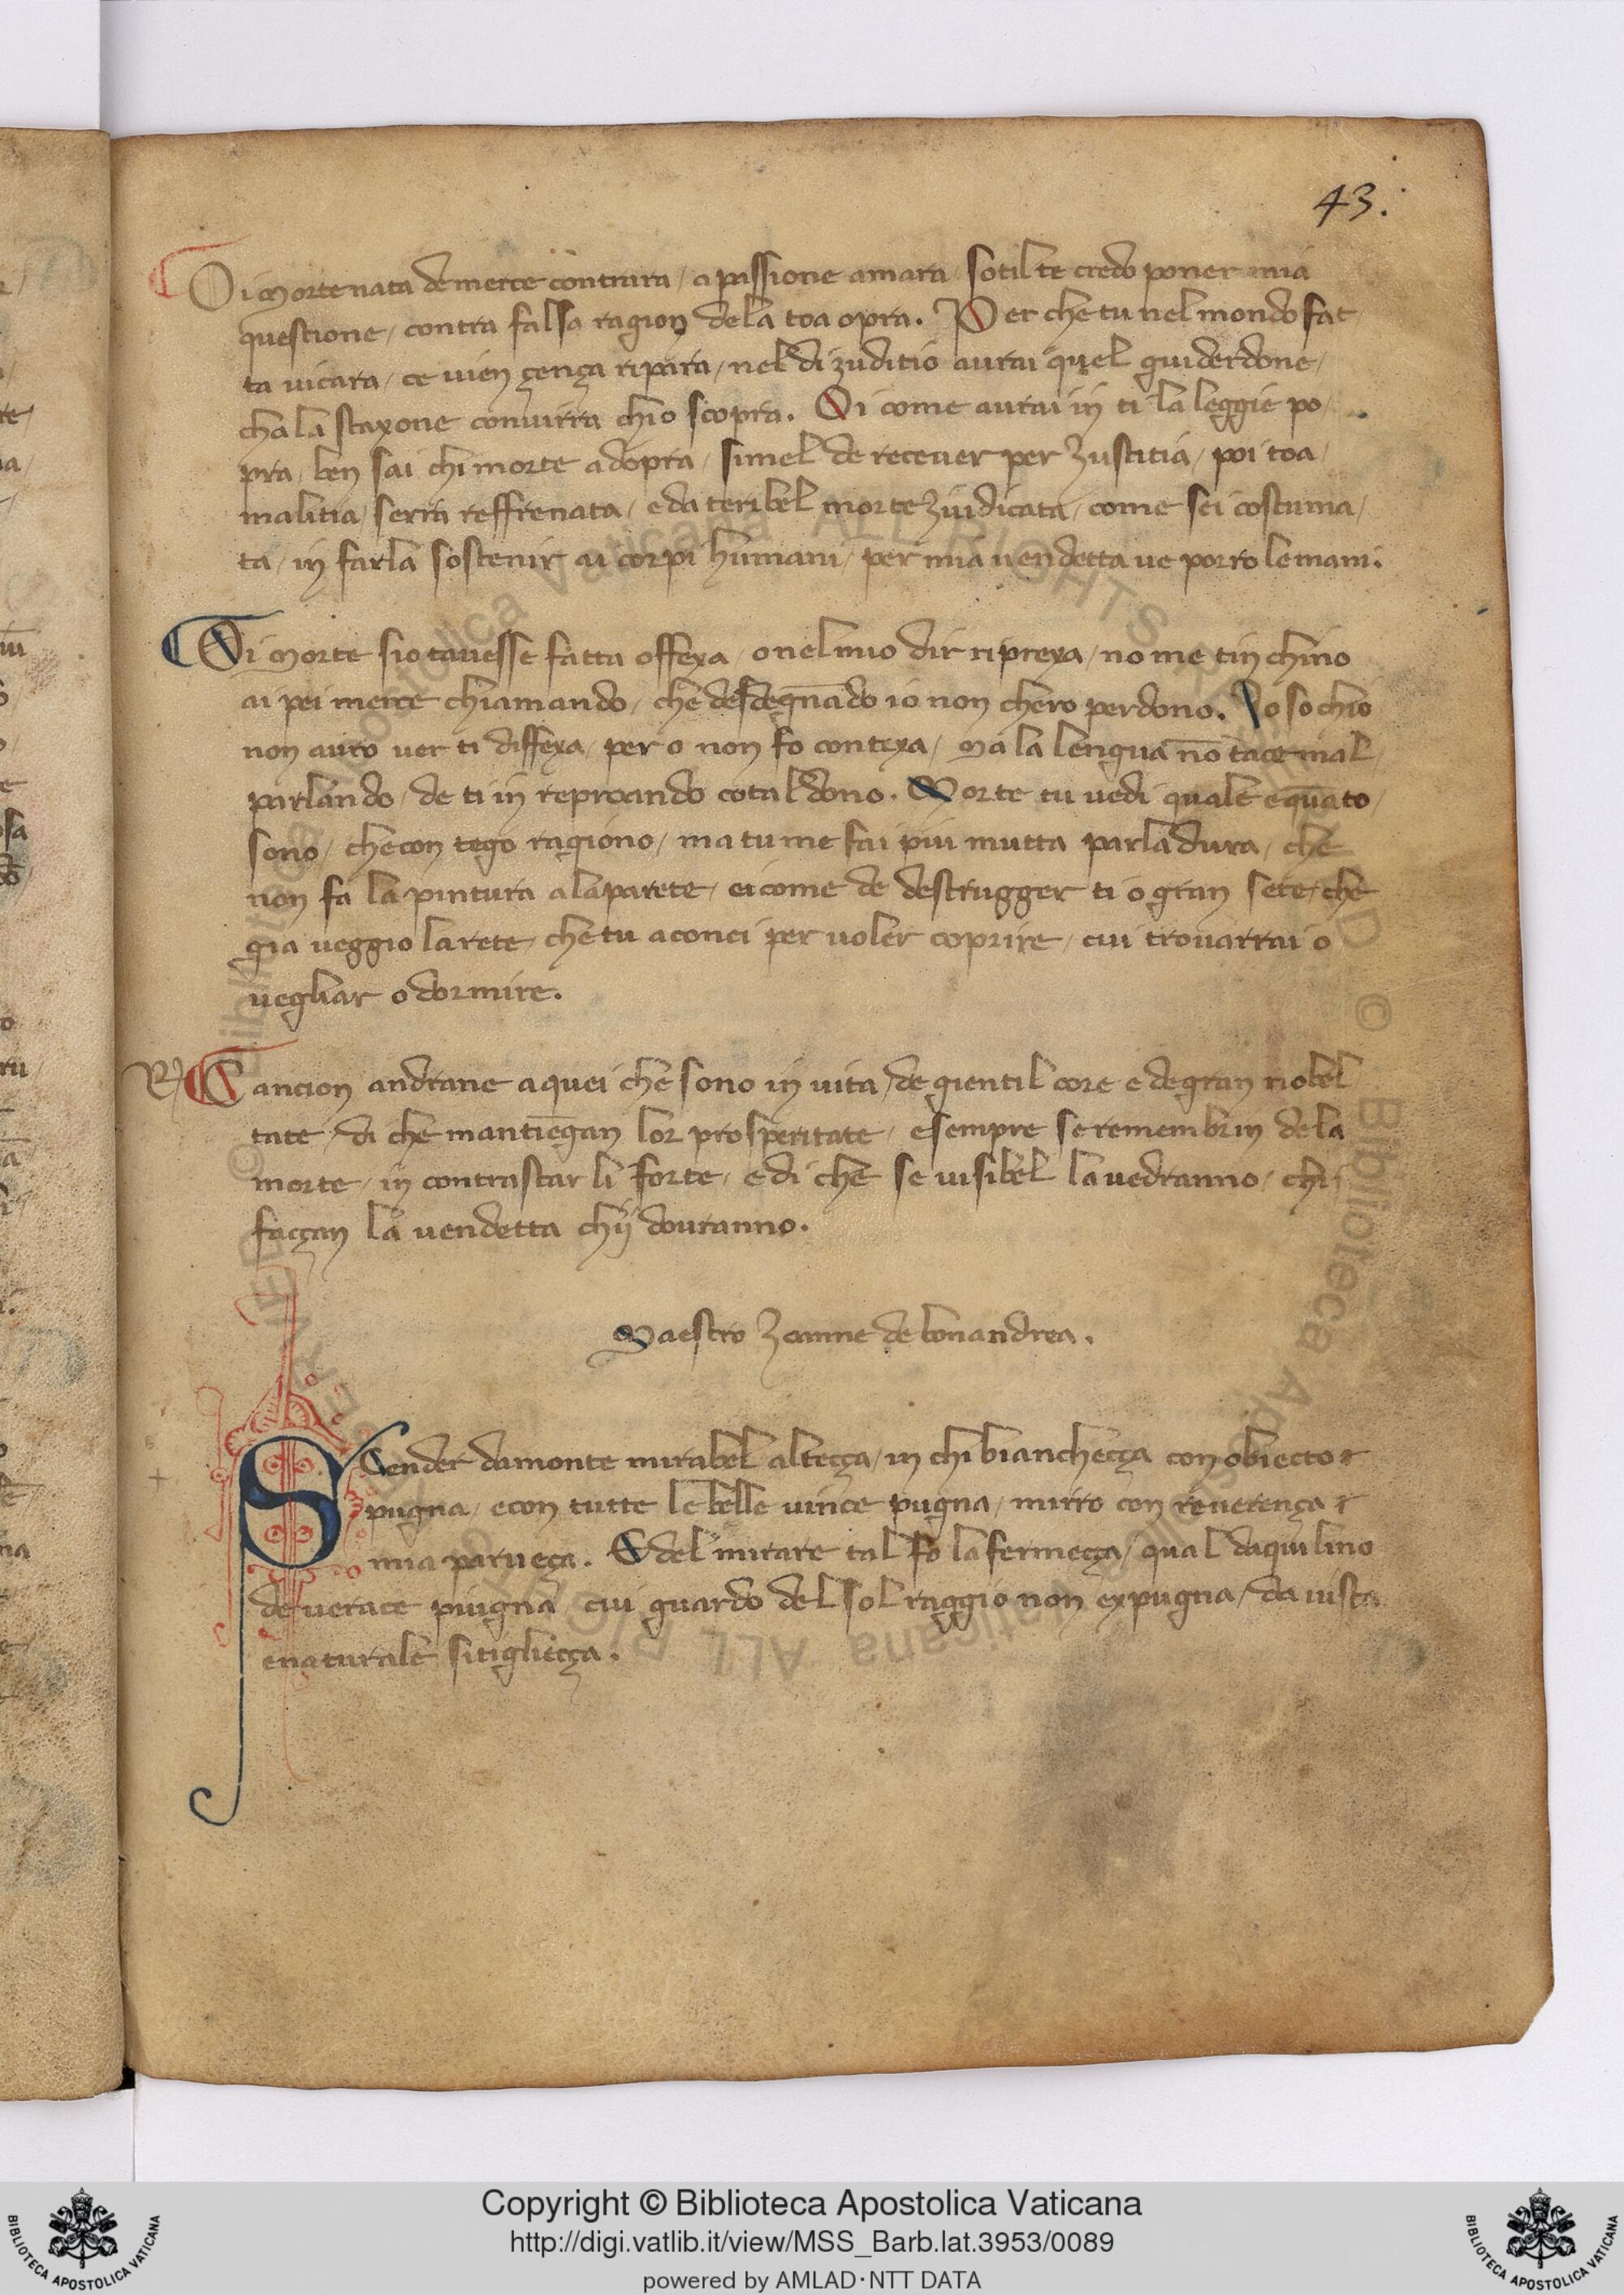 43.
Oi morte nata de merce contrara / a passione amara / sotil te credo poner mia
questione / contra falsa ragion dela toa opra. Per che tu nel mondo fat
ta vicara / ce vien çença ripara / nel di zuditio aurai quel guiderdone /
cha la staxone convirra chio scopra. Oi come aurai in ti la leggie po /
pra / ben sai chi morte adopra / simel de recever per zustitia / poi toa /
malitia / serra reffrenata / e da teribel morte zuidicata / come sei costuma /
ta / in farla sostenir ai corpi humani / per mia vendetta ve porro le mani.
Oi morte sio tavesse fatta offexa / o nel mio dir riprexa / no me tin chino
ai pei merce chiamando / che desdegnādo io non chero perdono. Io so chio
non auro ver ti diffexa / pero non fo contexa / Ma la lengua nō tace mal /
parlando / de ti in reproando cotal dono. Morte tu vedi quale e quāto /
sono / che con tego ragiono / ma tu me fai piu mutta parladura / che
non fa la pintura ala parete / ei come de destrugger ti o gran sete / che
gia veggio la rete / che tu aconci per voler coprire / cui trovarrai o
vegliar o dormire.
R) Cancion andrane a quei che sono in vita / de gientil core e de gran nobel
tate / di che mantiēgan lor prosperitate / e sempre se remembrin dela
morte / in contrastar li forte / e di che se visibel la vedranno / chi
façcan la vendetta chij douranno.
Maestro Zanne de bonandrea.
SCender da monte mirabel alteçça / in chi biancheçça con obiecto r
pugna / e con tutte le belle vince pugna / miro con reverença r
mia parveça. E del mirare tal fo la fermeçça / qual daquilino
de verace piugna / cui guardo del sol raggio non expugna / da vista
e naturale sitiglieçça.
Copyright © Biblioteca Apostolica Vaticana
http://digi.vatlib.it/view/MSS_Barb.lat.3953/0089
powered by AMLAD·NTT DATA
BIBLIOTECA APOSTOLICA VATICANA
BIBLIOTECA APOSTOLICA VATICANA